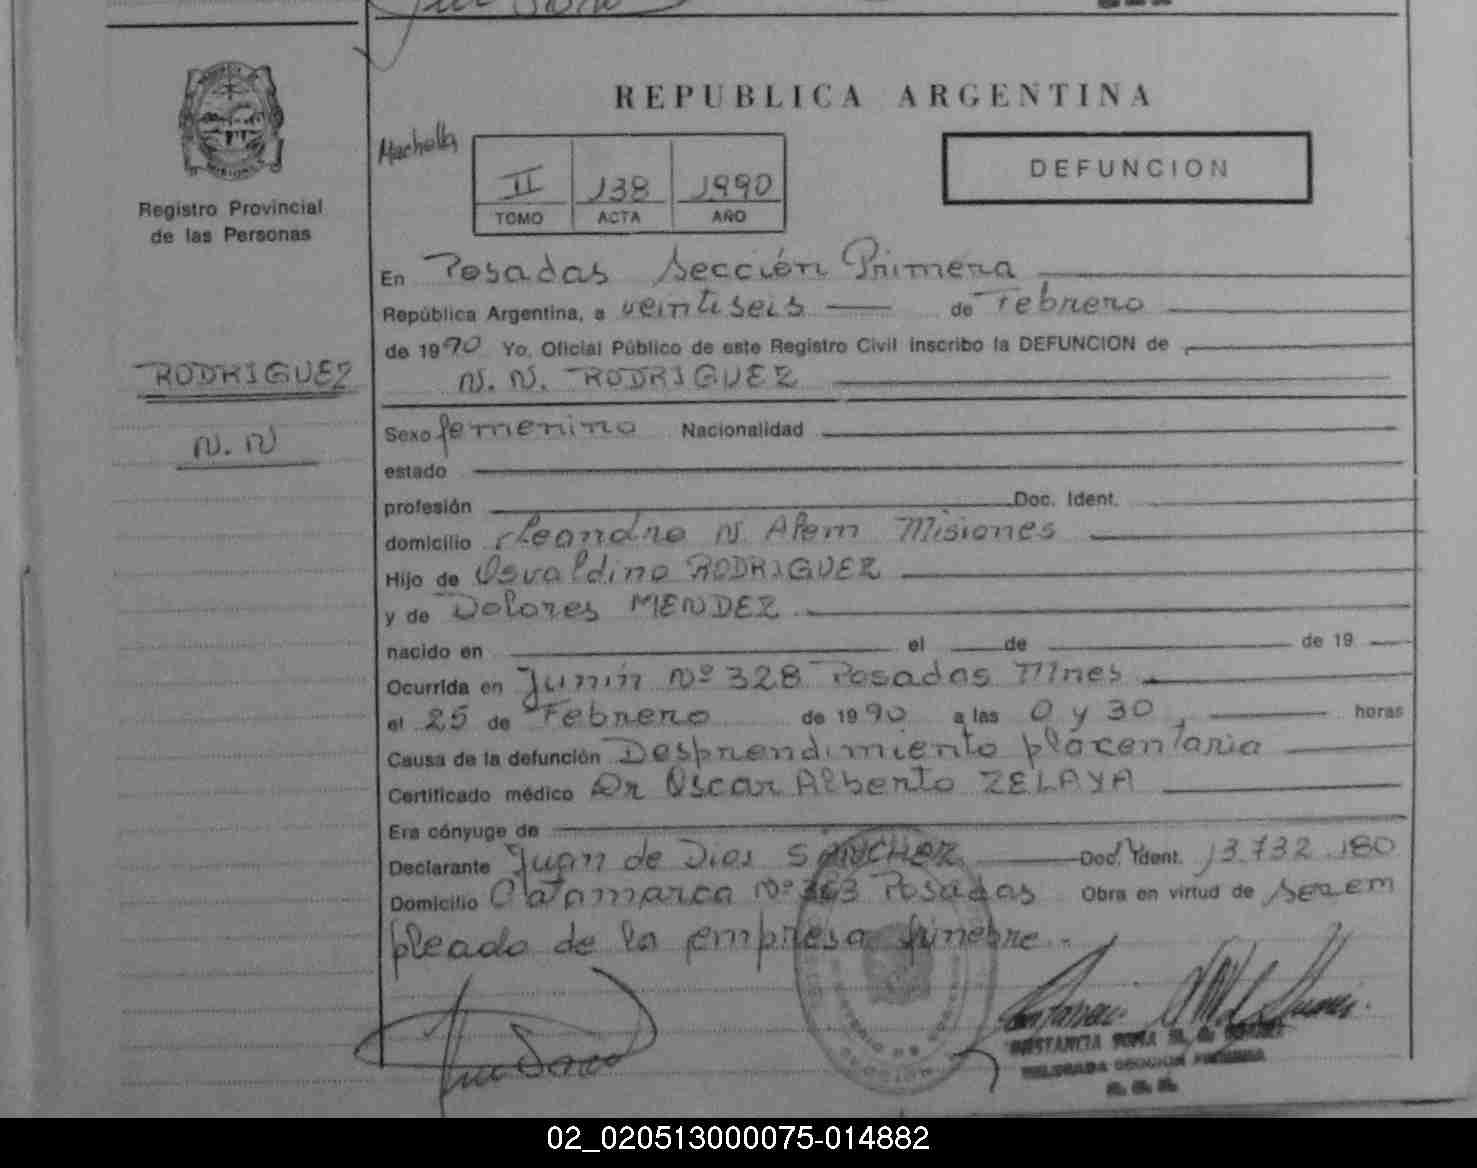 REPUBLICA ARGENTINA
MISIONES
Registro Provincial
de las Personas
II 138 1990
TOMO ACTA AÑO
DEFUNCION
En Posadas Sección Primera
República Argentina, a veintiseis de Febrero
de 1990 Yo, Oficial Público de este Registro Civil inscribo la DEFUNCION de
N. N. RODRIGUEZ
RODRIGUEZ
N. N
Sexo femenino Nacionalidad
estado
profesión Doc. Ident.
domicilio Leandro N. Alem Misiones
Hijo de Osvaldino RODRIGUEZ
y de Dolores MENDEZ
nacido en el de de 19
Ocurrida en Junin Nº 328 Posadas Mnes
el 25 de Febrero de 1990 a las 0 y 30, horas
Causa de la defunción Desprendimiento placentaria
Certificado médico Dr Oscar Alberto ZELAYA
Era cónyuge de
Declarante Juan de Dios SANCHEZ Doc. Ident. 13.732.180
Domicilio Catamarca Nº 363 Posadas Obra en virtud de ser em
pleado de la empresa fúnebre.-
02_020513000075-014882